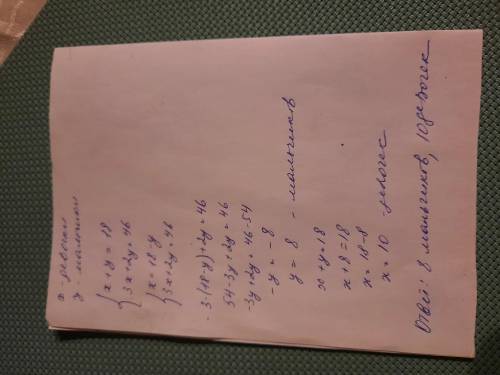 x - девочки
y - мальчики
{ x + y = 18
3x + 2y = 46
{ x = 18 - y
3x + 2y = 46
3·(18-y)+2y = 46
54-3y+2y = 46
-3y+2y = 46-54
-y = -8
y = 8 - мальчиков
x + y = 18
x + 8 = 18
x = 18-8
x = 10 -
Ответ: 8 мальчиков, 10 девочек